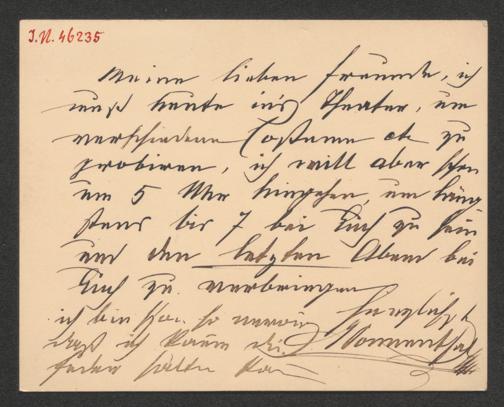 J.N. 46235
Meine lieben Freunde, ich
muß heute in's Theater, um
verschiedene Costume etc zu
probiren, ich will aber schon
um 5 Uhr hingehen, um läng
stens bis 7 bei Euch zu sein
und den letzten Abend bei
Euch zu verbringen
Herzlichst
Sonnenthal
ich bin so nervös
daß ich kaum die
Feder halten kan